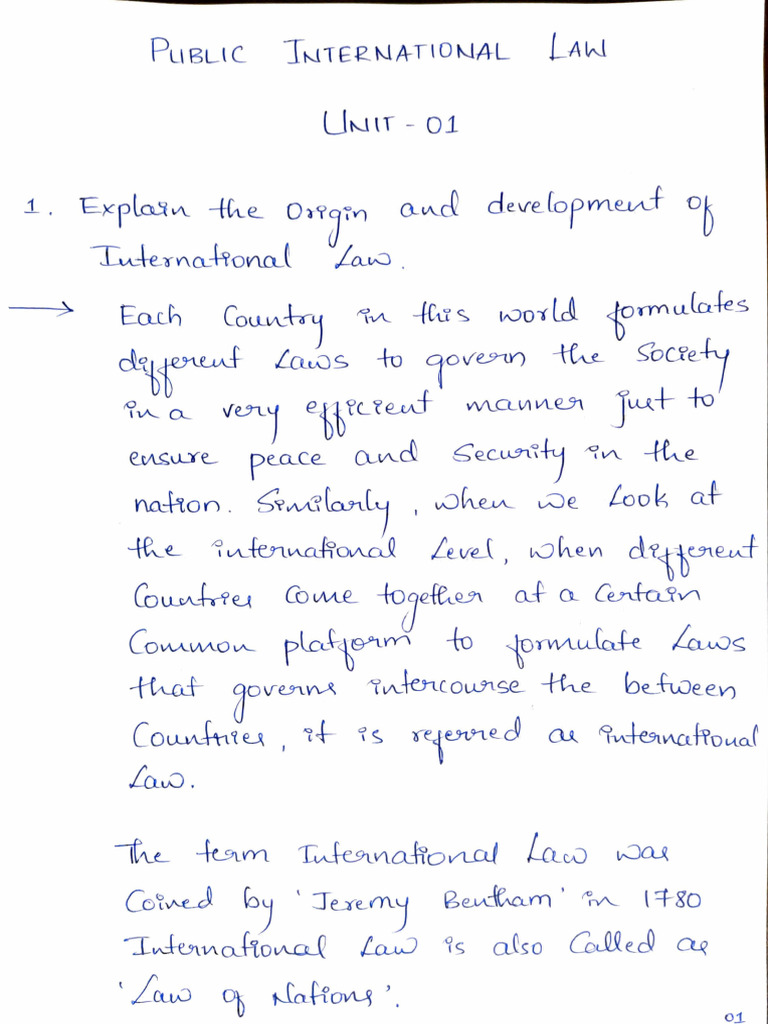 PUBLIC INTERNATIONAL LAW
UNIT - 01
1. Explain the Origin and development of
International Law.
→ Each Country in this world formulates
different Laws to govern the Society
in a very efficient manner just to
ensure peace and Security in the
nation. Similarly, when we Look at
the international Level, when different
Countries come together at a Certain
Common platform to formulate Laws
that governs intercourse the between
Countries, it is referred as international
Law.
The term International Law was
Coined by 'Jeremy Bentham' in 1780
International Law is also Called as
'Law of Nations'.
01